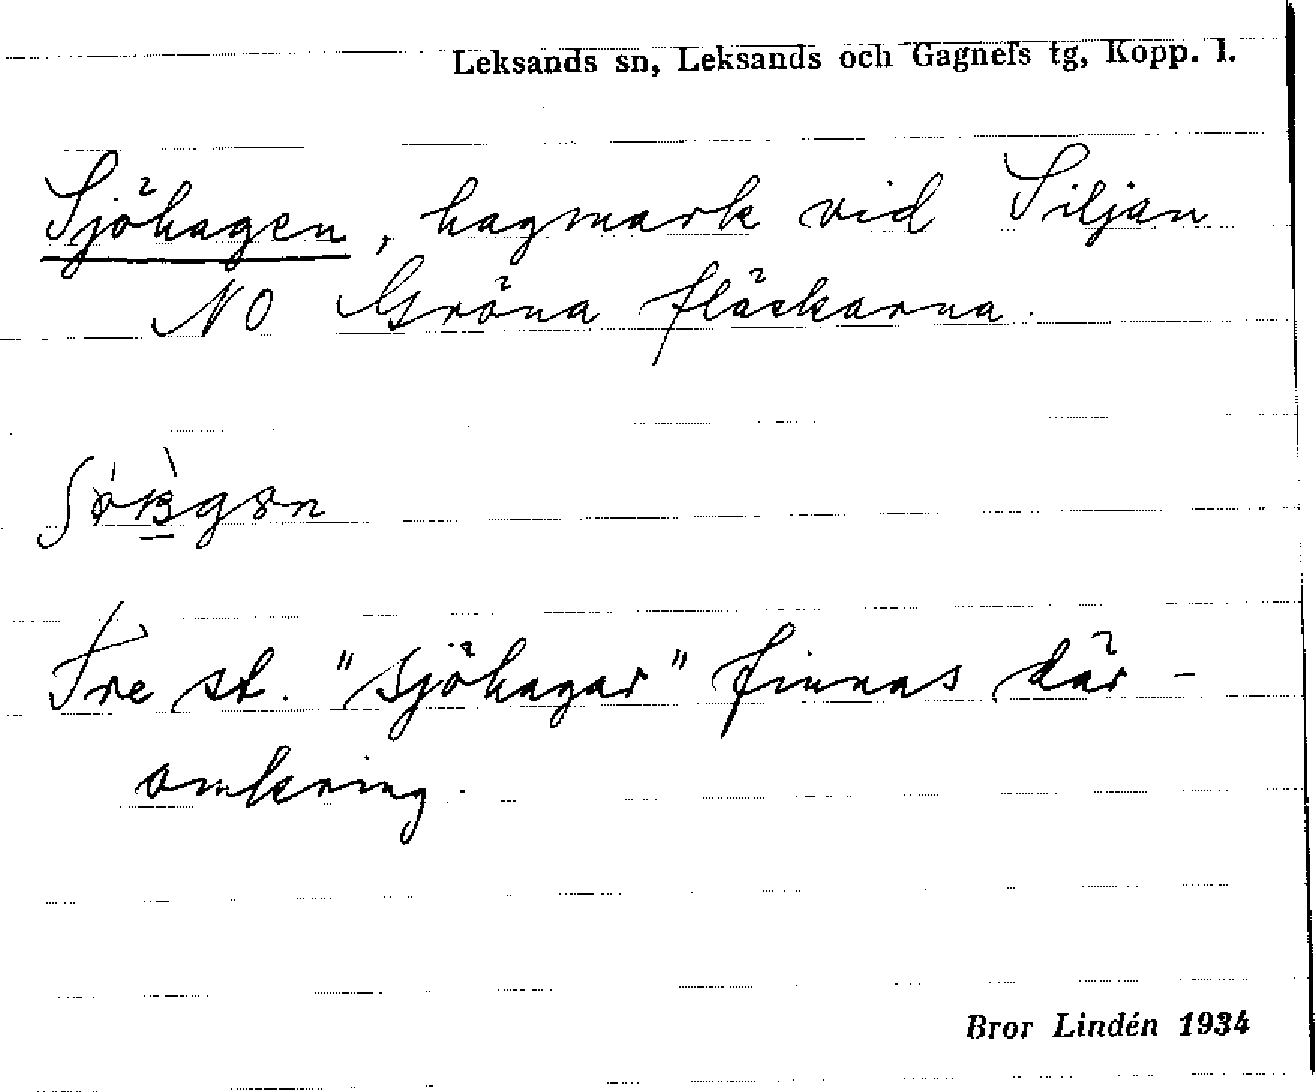 Leksands sn, Leksands och Gagnefs tg, Kopp. l.
Sjöhagen, hagmark vid Siljan
NO Gröna fläckarna.
Tre st. "sjöhagar" finnas där-
omkring.
Bror Lindén 1934